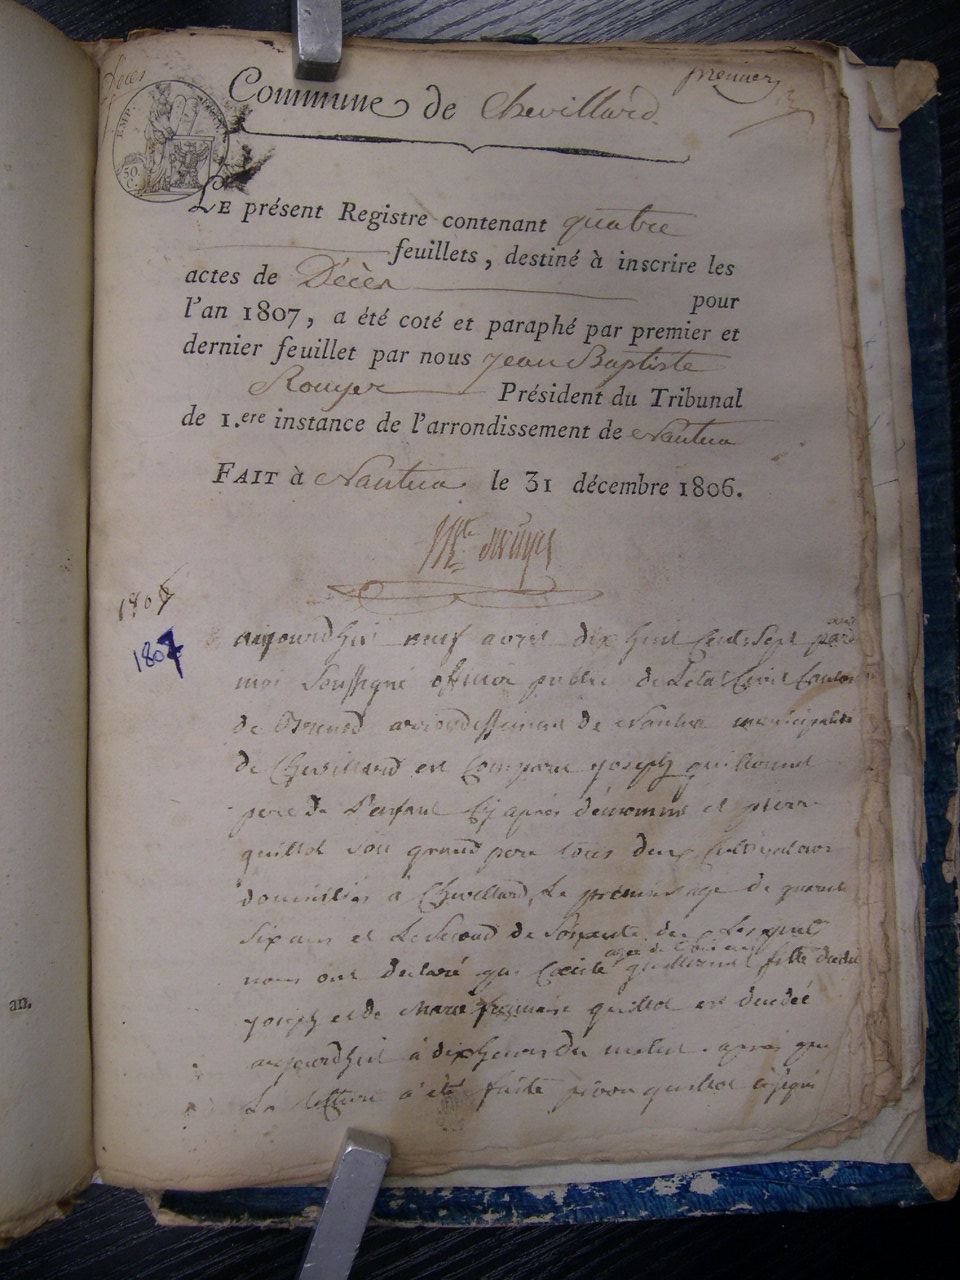 Décès
premier
Commune de Chevillard
EMP.
50.
C.
LE présent Registre contenant quatre
feuillets, destiné à inscrire les
actes de Décès pour
l'an 1807, a été coté et paraphé par premier et
dernier feuillet par nous Jean Baptiste
Rouyer Président du Tribunal
de 1.ere instance de l'arrondissement de Nantua
FAIT à Nantua le 31 décembre 1806.
1807
1807
aujourdhui neuf avril dix huit Cent Sept par
moi Soussigné officier public de Letat Civil Canton
de Brenod arrondissement de Nantua municipalité
de Chevillard est Comparu joseph guillermet
pere de L'enfant Cy après dénommé et pierre
quillot son grand pere tous deux Cultivateurs
domiciliés à Chevillard, Le premier age de quarante
Six ans et Le Second de Soixante dix Lesquels
nous ont declaré que guillermet fille dudit
joseph et de Marie quillot est decedée
aujourdhui à dix heures du matin. après que
La lecture à été faite quillot
an.